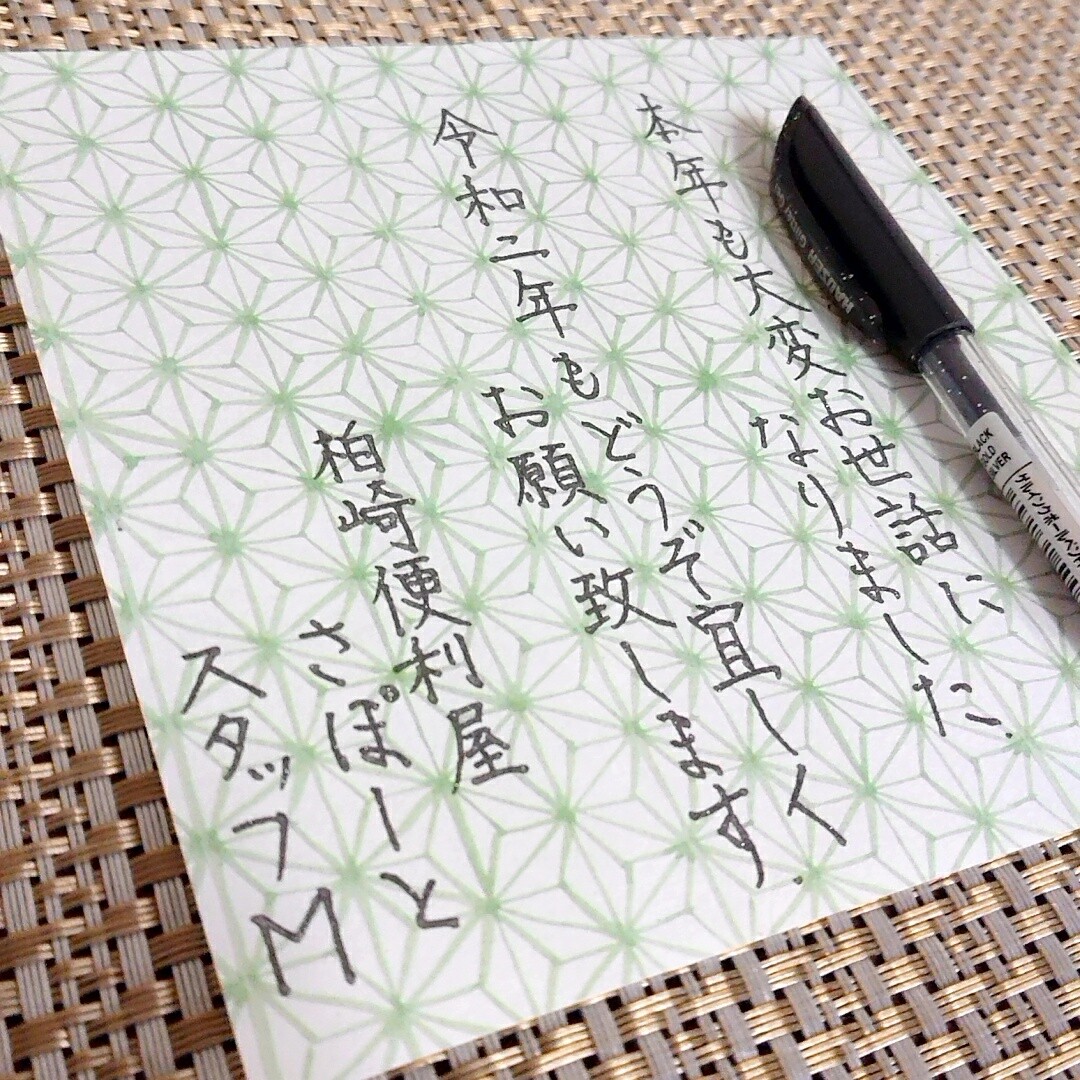 本年も大変お世話に
なりました.
令和二年もどうぞ宜しく
お願い致します.
柏崎便利屋
さぽーと
スタッフM
ゲルインクボールペン